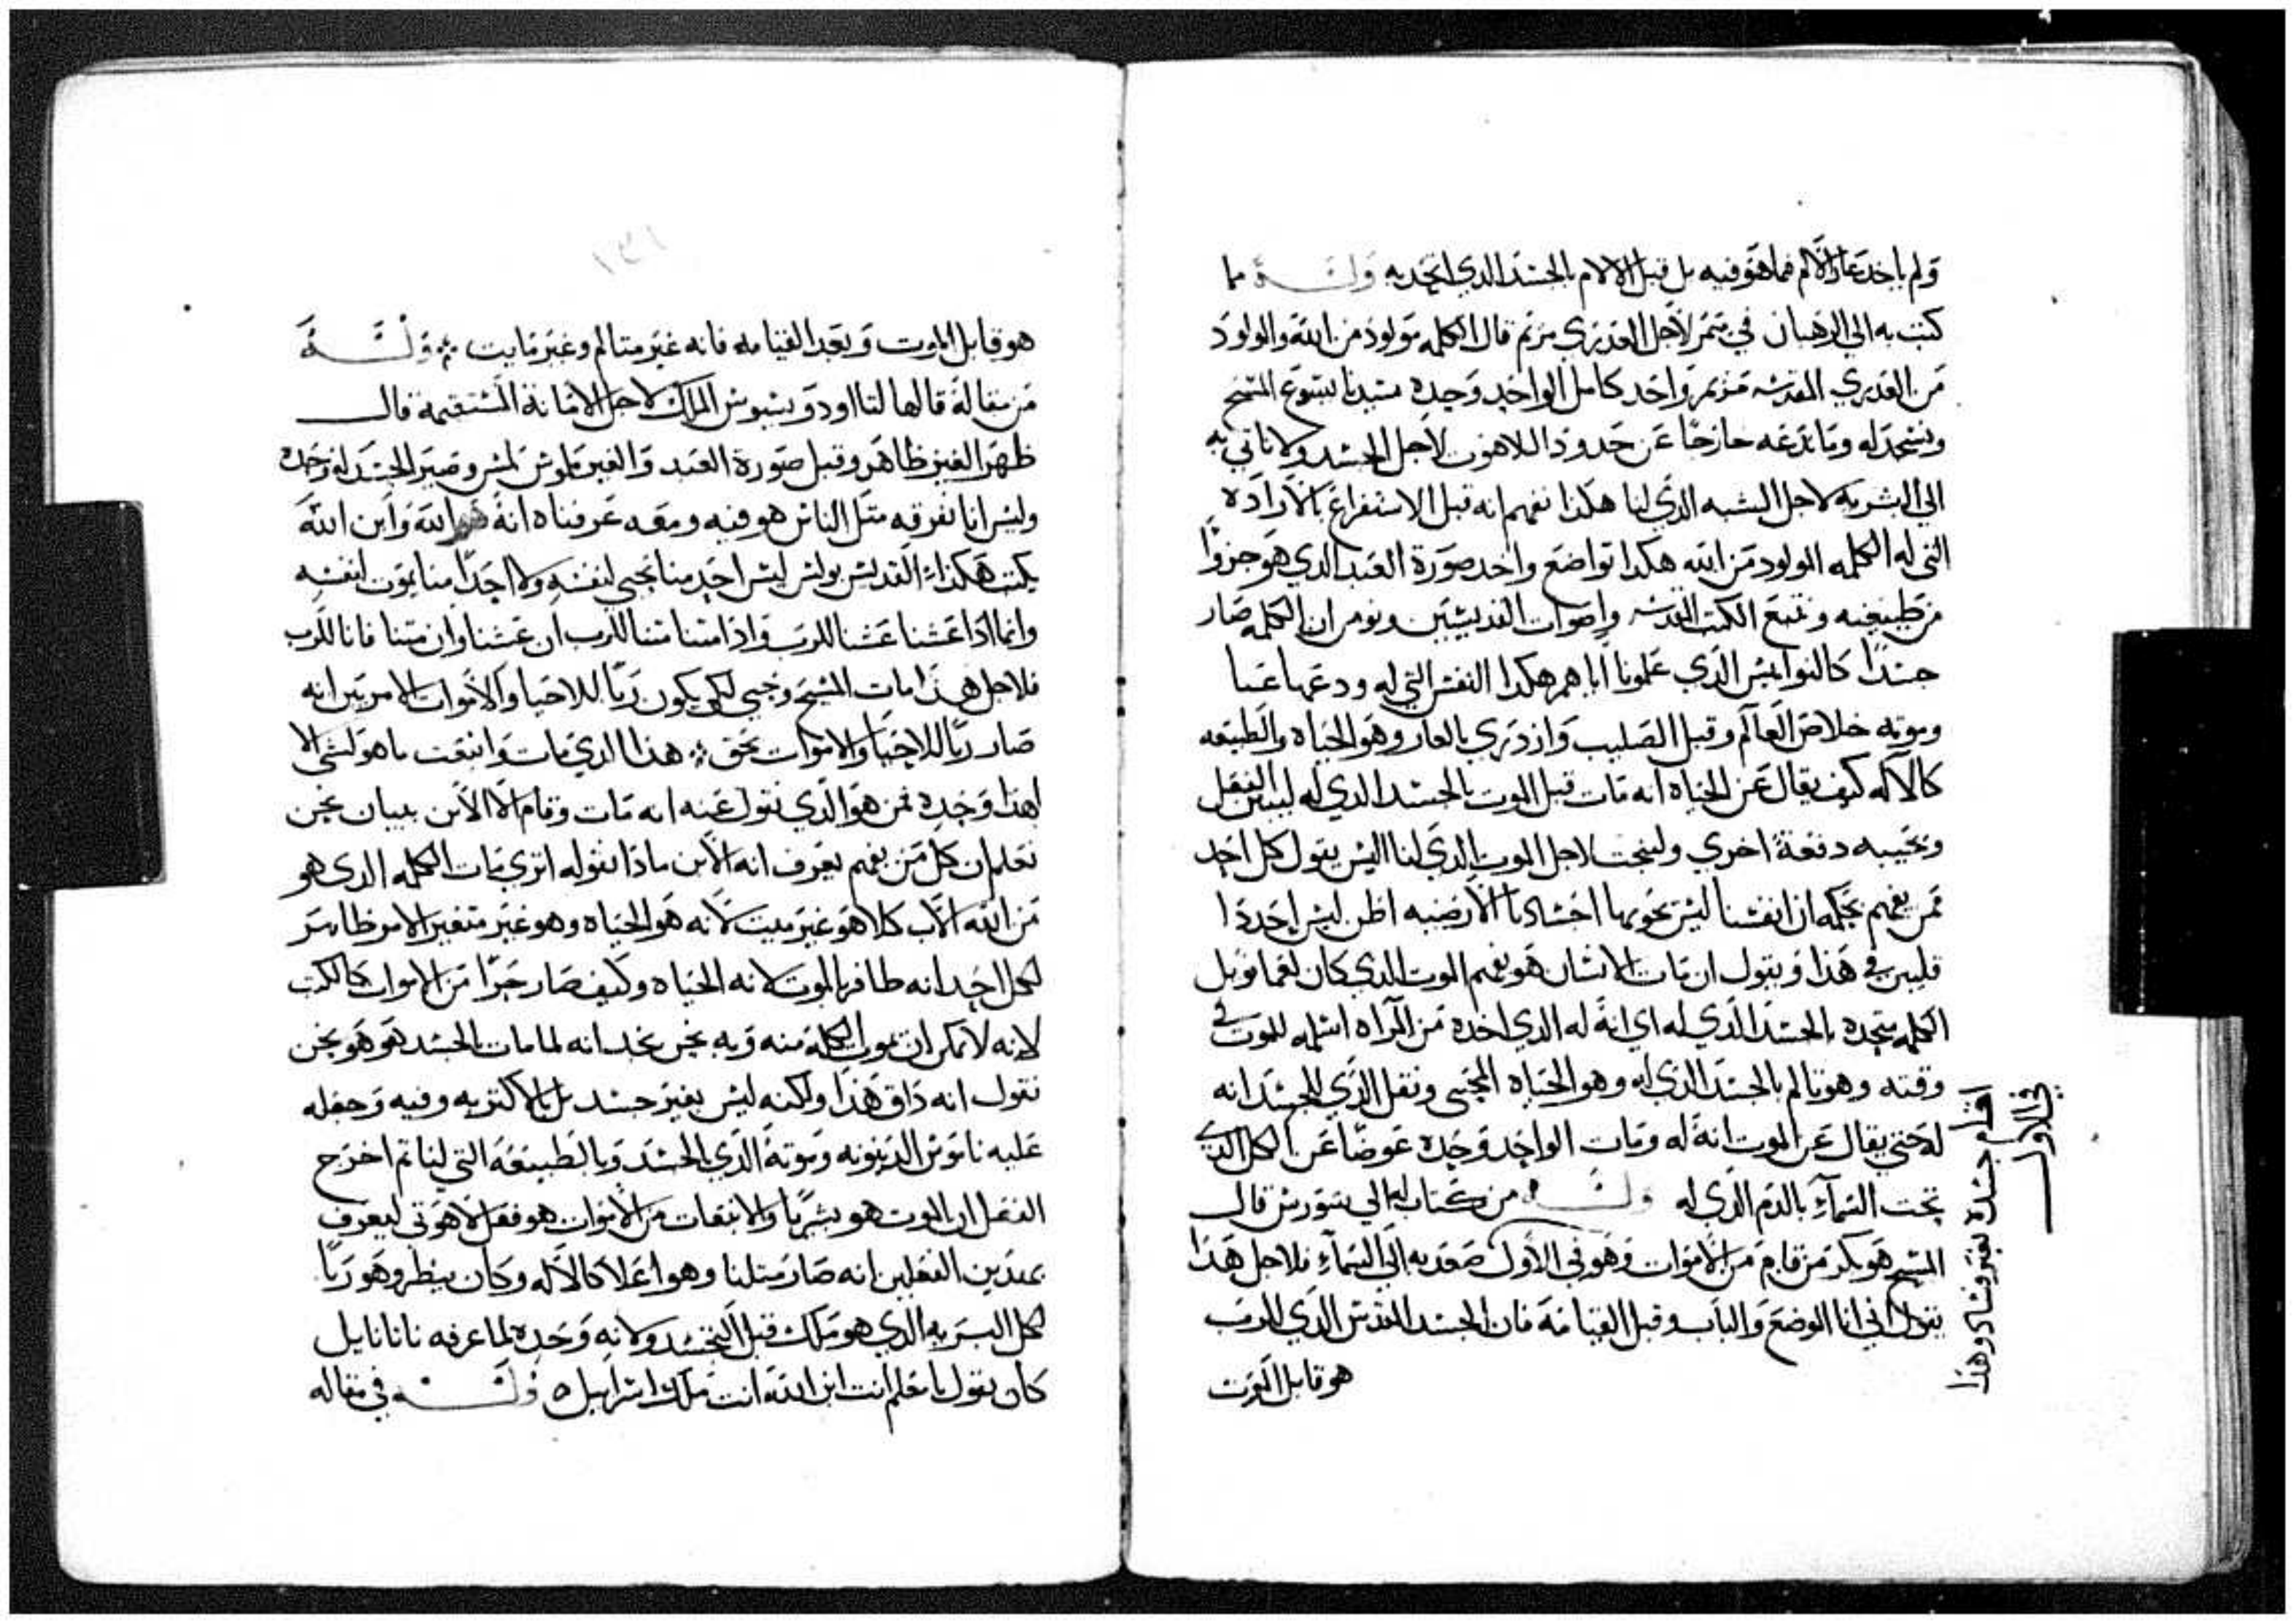 ولم ياخد عار الالام فما هو فيه بل قبل الالام بالجسد الدي اتحد به وله مما
كتب به الي الرهبان في ميمر لاجل العدري مريم قال الكلمه مولود من الله والمولود
من العدري المقدسه مريم واحد كامل الواحد وحده سيدنا يسوع المسيح
ونسجد له وما ندعه خارجا عن حدود اللاهوت لاجل الجسد ولا ناتي به
الي البشريه لاجل الشبه الدي لنا هكذا نفهم انه قبل الاستفراغ بالاراده
التي له الكلمه المولود من الله هكدا تواضع واخد صورة العبد الدي هو جزوا
من طبيعته ونتبع الكتب المقدسه واصوات القديسين ونومن ان الكلمه صار
جسدا كالنواميس الدي علمونا اباهم هكدا النفس التي له ودعها عنا
وموته خلاص العالم وقبل الصليب وازدري بالعار وهو الحياه بالطبيعه
كالاله كيف يقال عن الحياه انه مات قبل الموت بالجسد الدي له
ونجيبه دفعة اخري ولنبحث لاجل الموت الدي لنا اليس يقول كل احد
ممن يفهم بحكمه ان انفسنا ليس تحويها اجسادنا الارضيه اظن ليس احد دا
فليس في هذا ويقول ان مات الانسان هو يفهم الموت الدي كان
الكلمه متحده بالجسد الدي له اي انه له الدي اخده من المراه اسلمه للموت في
وقته وهو تالم بالجسد الدي له وهو الحياه المحيي ونقل الدي للجسد انه
له حتي يقال عن الموت انه له ومات الواحد وحده عوضا عن الكل الدي
تحت السماء بالدم الدي له وله من كتاب له الي نسورس قال
المسيح هو بكر من قام من الاموات وهو في الاول صعد به الي السماء فلاجل هدا
يقول اني انا الوضع والباب وقبل القيامه فان الجسد المقدس الدي للرب
هو قابل الموت
اقام جسده بغير فساد وهذا
في الاول
١٣١
هو قابل الموت وبعد القيامه فانه غير متالم وغير مايت وله
من مقالة قالها لتااودوسيوس الملك لاجل الامانة المستقيمة قال
ظهر الغير ظاهر وقبل صورة العبد والغير ملموس لمس وصير الجسد له وحده
وليس انا نفرقه مثل الناس هو فيه ومعه عرفناه انه هو الله وابن الله
يكتب هكذا القديس بولس ليس احد منا يحيي لنفسه ولا احدا منا يموت لنفسه
وانما ادا عشنا عشنا للرب وادا متنا متنا للرب ان عشنا وان متنا فانا للرب
فلاجل هدا مات المسيح وحيي لكي يكون ربا للاحيا والاموات الامر بين انه
صار ربا للاحيا والاموات بحق هذا الدي مات وانبعث ما هو لشي الا
لهذا وحده فمن هو الدي نقول عنه انه مات وقام الا الابن ببيان نحن
نعلم ان كل من يفهم يعرف انه الابن مادا نقوله اتري مات الكلمه الدي هو
من الله الاب كلا هو غير ميت لانه هو الحياه وهو غير متغير الامر ظاهر
لكل احد انه ظافر بالموت لانه الحياه وكيف صار حرا من الاموات كالكتب
لانه لا يمكن ان يموت الكلمه منه وبه نحن نجد انه لما مات بالجسد هو هو نحن
نقول انه داق هذا ولكنه ليس بغير جسد بل بالاكتر به وفيه وجعله
عليه ناموس الدينونه وموته الدي للجسد وبالطبيعه التي لنا تم اخرج
الفعل ان الموت هو بشريا والانبعات من الاموات هو فعل لاهوتي ليعرف
بهدين الفعلين انه صار متلنا وهو اعلا كالاله وكان ينظر وهو ربا
لكل البريه الدي هو ملك قبل التجسد ولانه وحده لما عرفه ناتانايل
كان يقول يا معلم انت ابن الله انت ملك اسراييل وله في مقاله